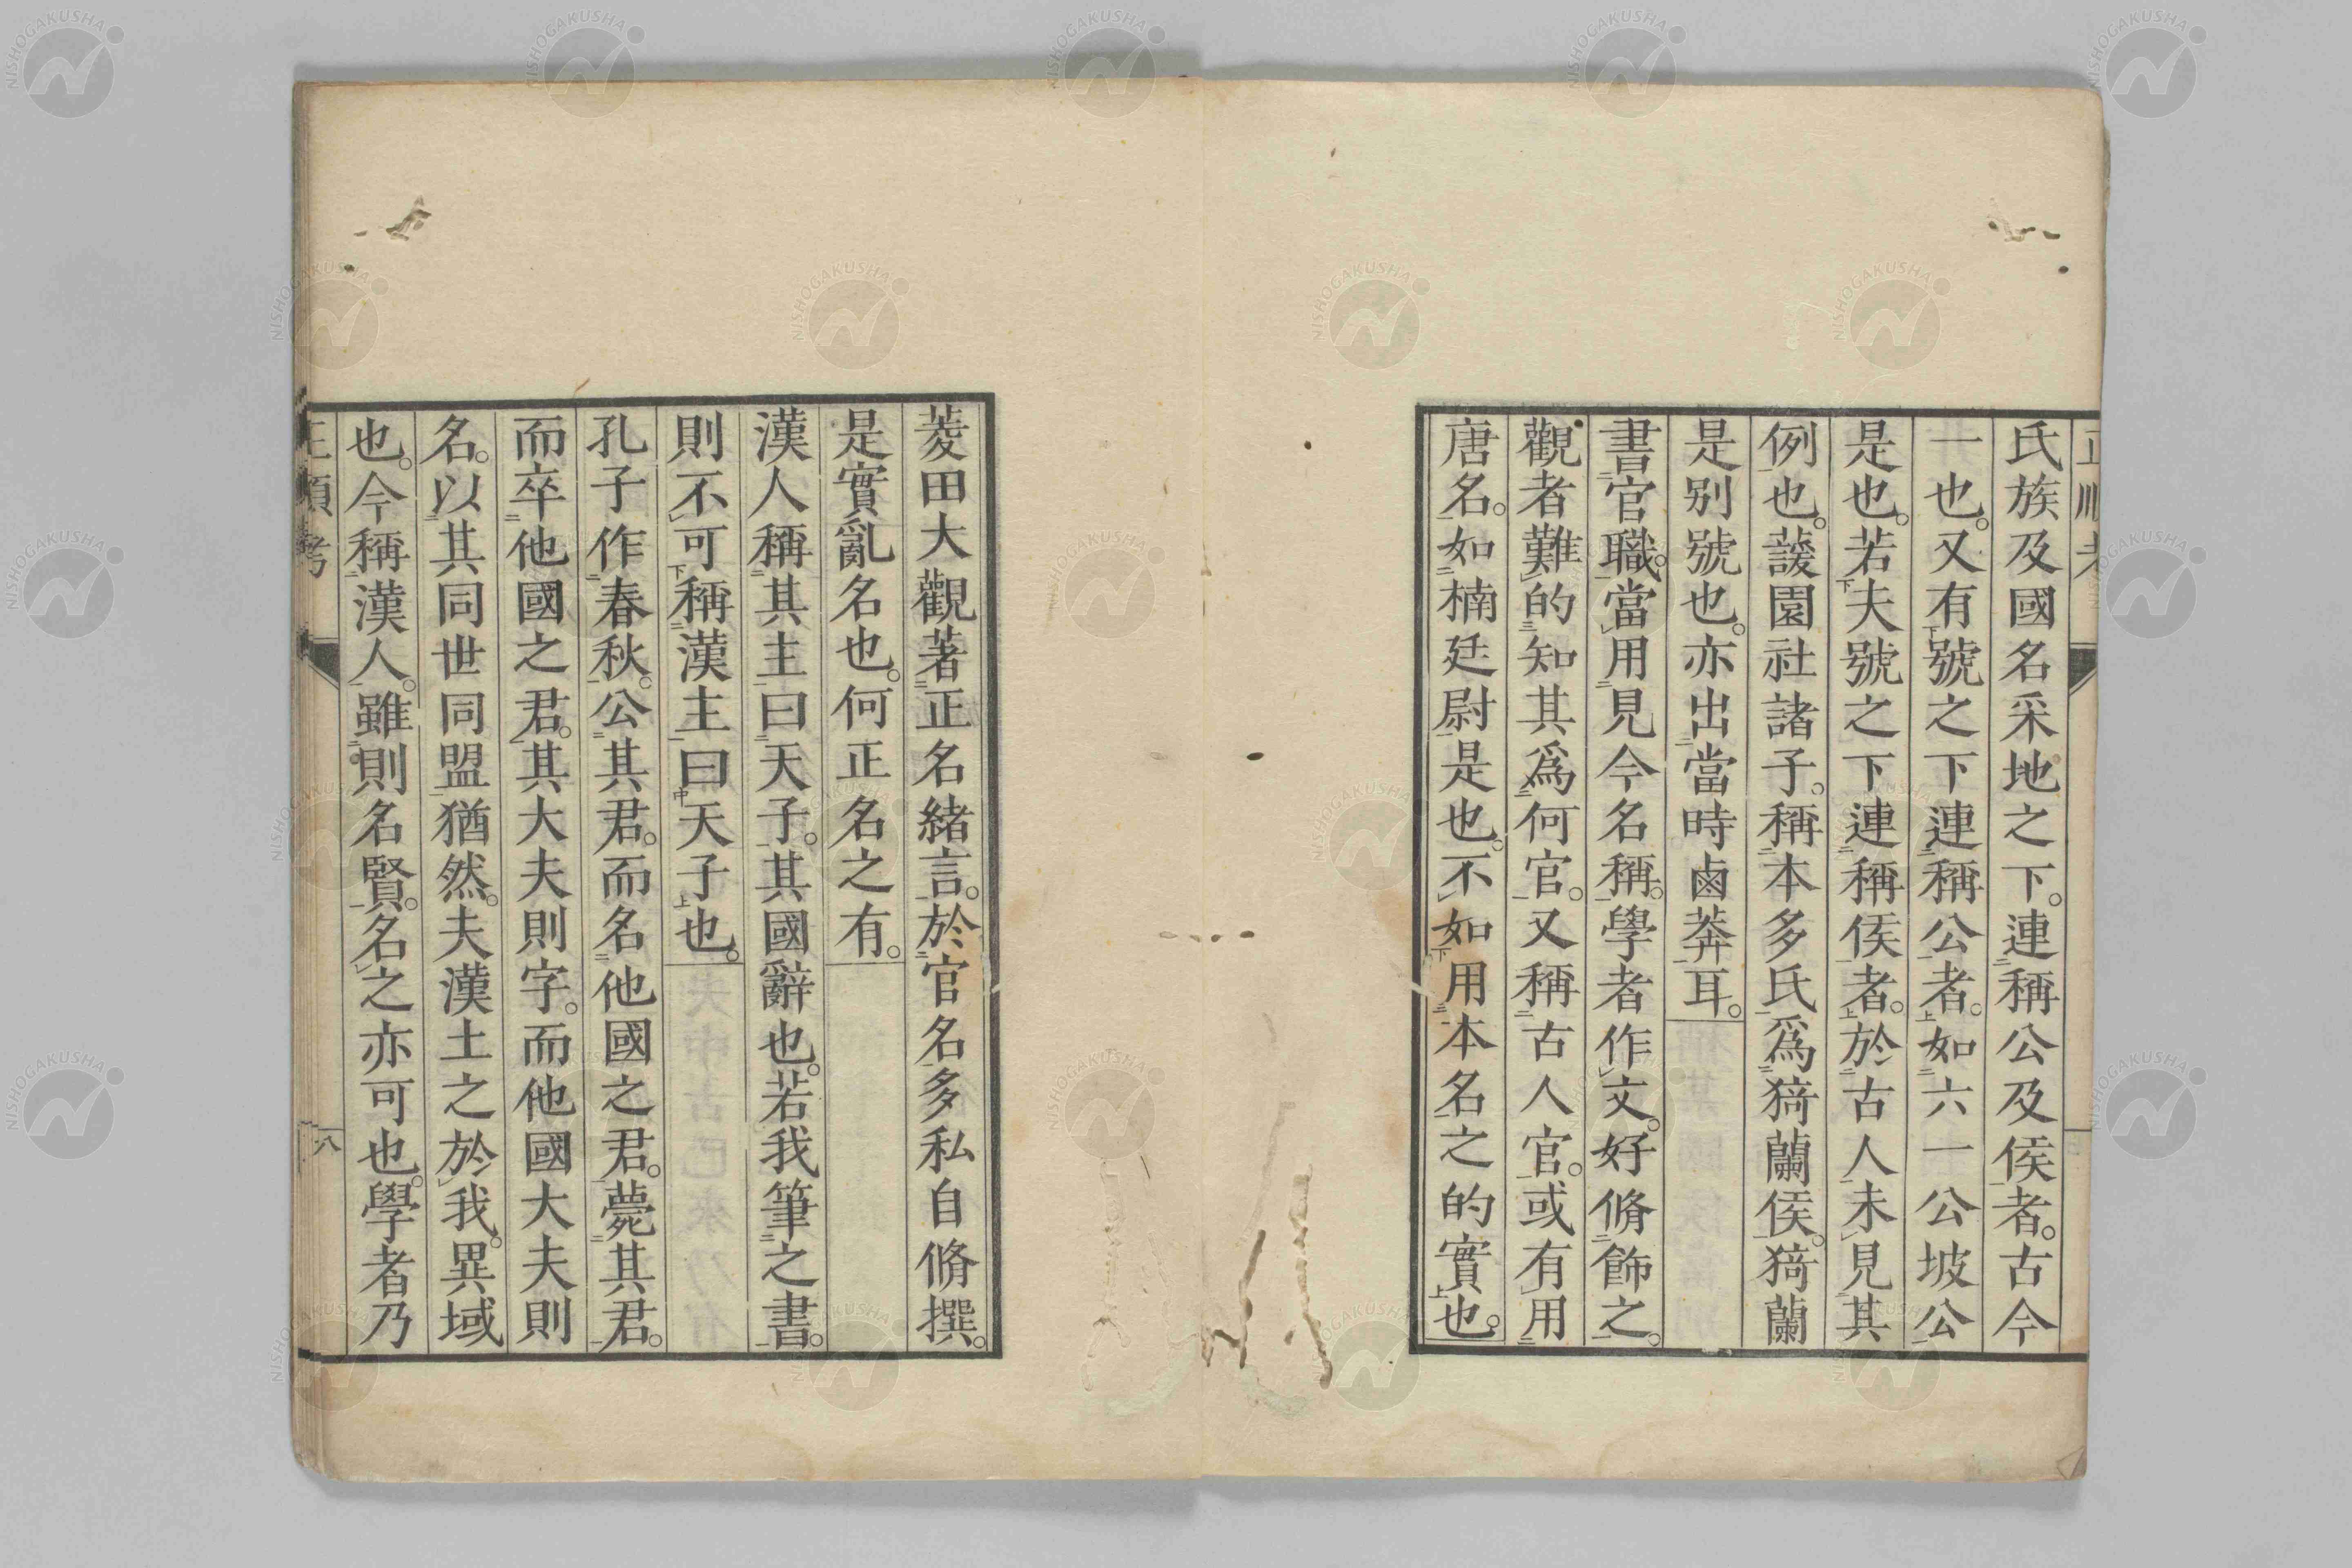 氏族及國名采地之下。連稱公及侯者。古今
一也。又有號之下連稱公者。如六一公坡公
是也。若夫號之下連稱侯者。於古人未見其
例也。蘐園社諸子。稱本多氏爲猗蘭侯。猗蘭
是別號也。亦出當時鹵莽耳。
書官職。當用見今名稱。學者作文。好脩飾之。
觀者難的知其爲何官。又稱古人官。或有用
唐名。如楠廷尉是也。不如用本名之的實也。
菱田大觀著正名緒言。於官名多私自脩撰。
是實亂名也。何正名之有。
漢人稱其主曰天子。其國辭也。若我筆之書。
則不可稱漢主曰天子也。
孔子作春秋。公其君。而名他國之君。薨其君。
而卒他國之君。其大夫則字。而他國大夫則
名。以其同世同盟猶然。夫漢土之於我。異域
也。今稱漢人。雖則名賢。名之亦可也。學者乃
八
NISHOGAKUSHA